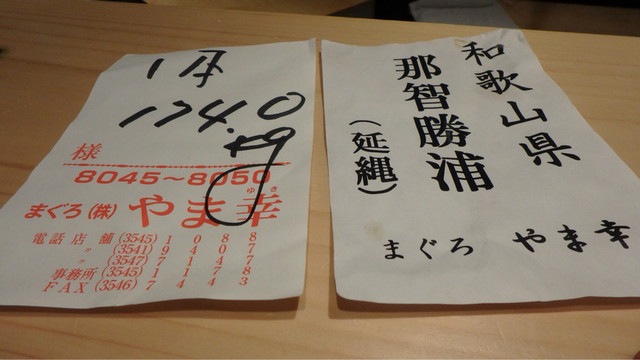 174.0
kg
様
8045〜8050
まぐろ(株)やま幸
ゆき
電話店舗(3545)1088
〃(3541)9407
〃(3547)7147
事務所(3545)1178
FAX(3546)7443
和歌山県
那智勝浦
(延縄)
まぐろ やま幸